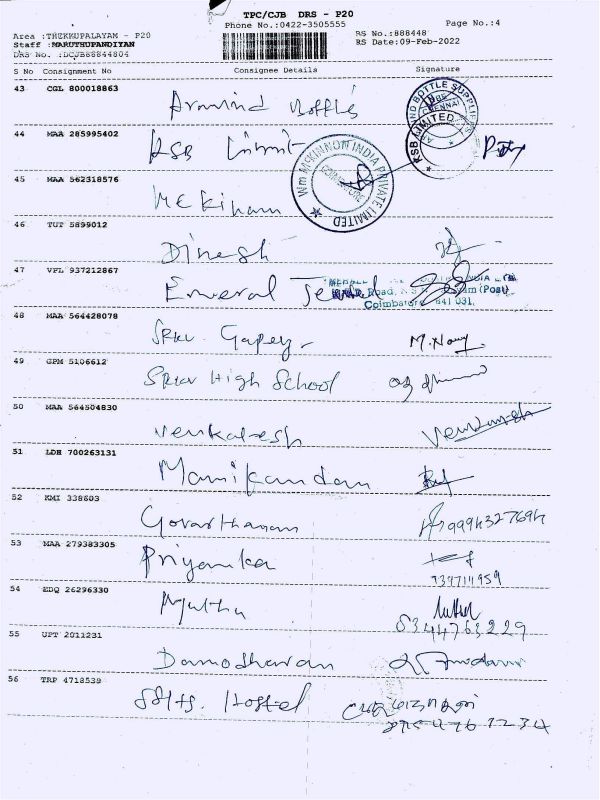 TPC/CJB DRS - P20
Phone No.:0422-3505555 Page No.:4
Area :THEKKUPALAYAM - P20 RS No.:888448
Staff :MARUTHUPANDIYAN RS Date:09-Feb-2022
DRS No. :DCJB88844804
S No Consignment No Consignee Details Signature
43 CGL 800018863
Aravind Bottles
44 MAA 285995402
KSB Limit
45 MAA 562318576
Mckinam
46 TUT 5899012
Dinesh
47 VFL 937212867
Emeral
Coimbatore 641 031.
48 MAA 564428078
SRKV
M.Nony
49 GPM 5106612
SRKV High School
50 MAA 564504830
Venkatesh
Venkatesh
51 LDH 700263131
Manikandan
52 KMI 338603
Govarthanam
9994327694
53 MAA 279383305
Priyanka
54 EDQ 26296330
Muthu
8344763229
55 UPT 2011231
Damodharan
56 TRP 4718539
Hostel
Wm MCKINNON INDIA PRIVATE LIMITED
COIMBATORE
KSB LIMITED
BOTTLE SUPPLIERS